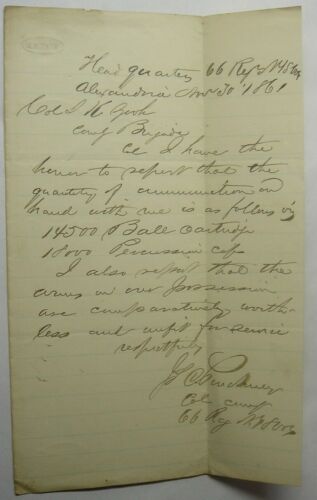 Head quarters 66 Regt NYSV
Alexandria Nov 30th 1861
Col
Comg Brigade
Col I have the
honor to report that the
quantity of ammunition on
hand with me is as follows viz
14500 Ball Cartridge
18000 Percussion Caps
I also report that the
arms in our possession
are comparatively worth-
less and unfit for service
respectfully
J C Pinckney
Col Comg
66 Reg NYSVols